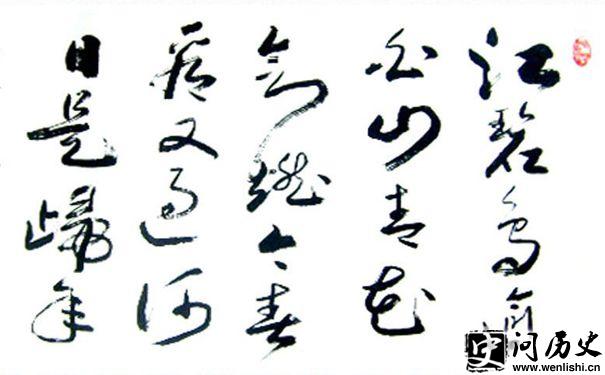 江碧鸟逾
白山青花
欲燃今春
看又過何
日是歸年
史 问历史
www.wenlishi.cn